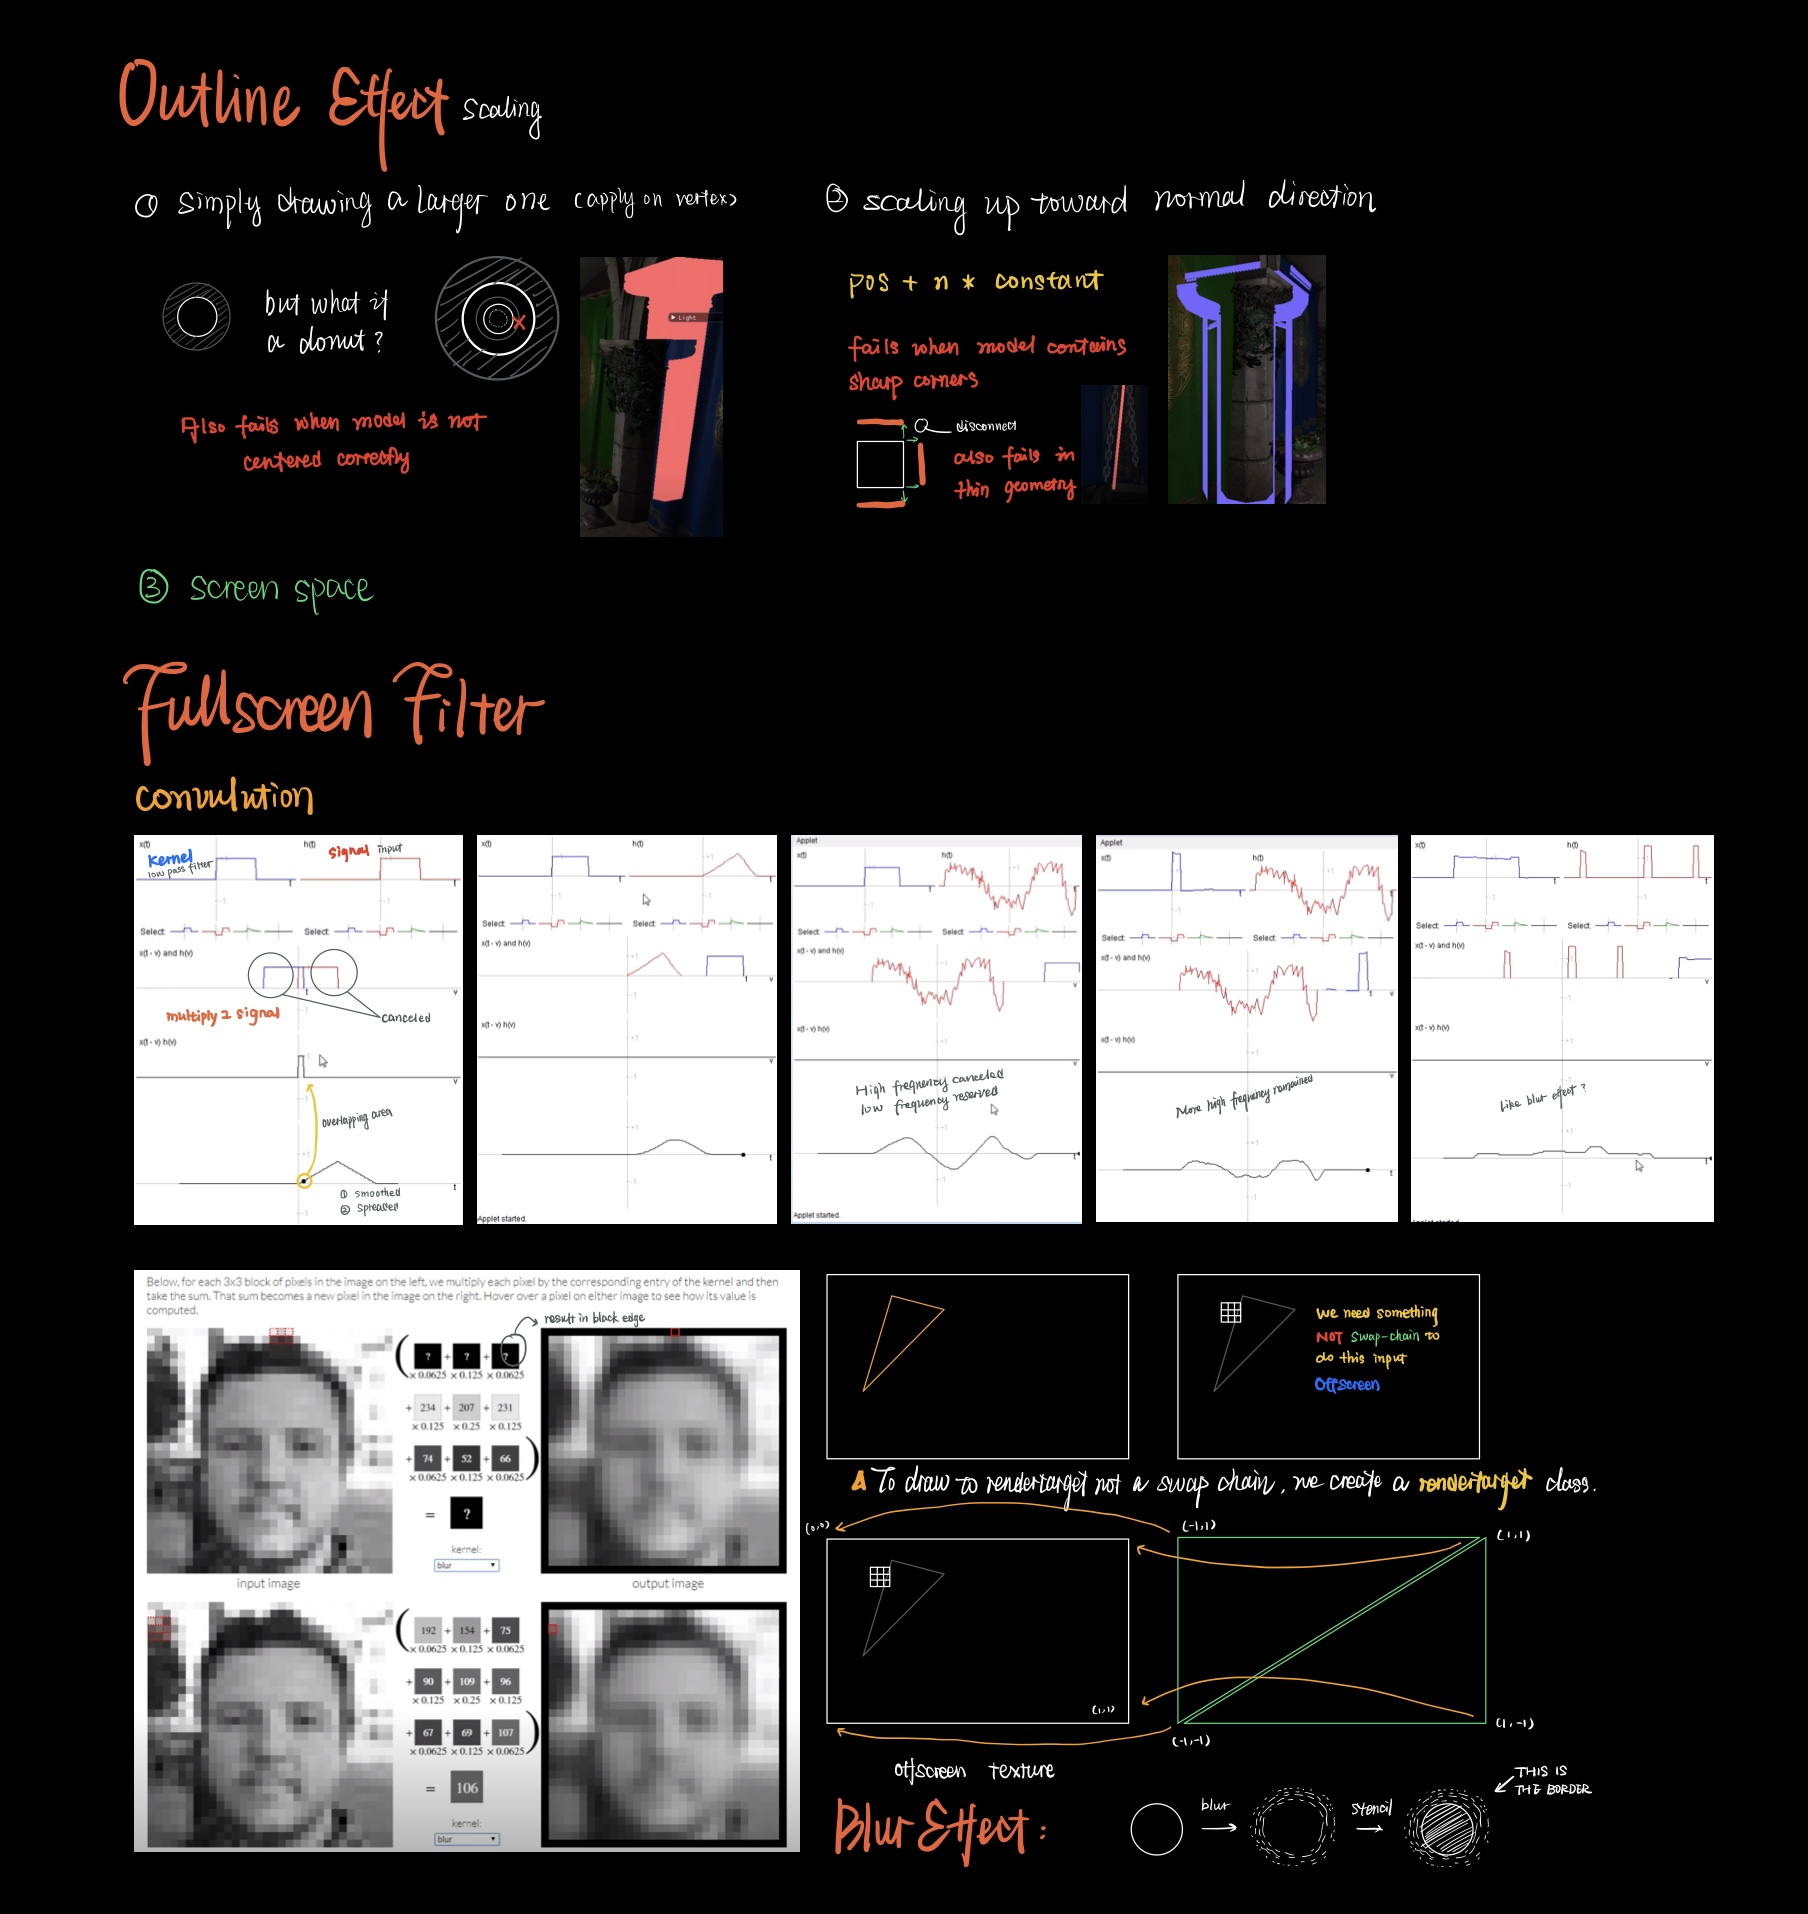 Outline Effect scaling
① simply drawing a larger one (apply on vertex)
but what if
a donut?
Also fails when model is not
centered correctly
Light
② scaling up toward normal direction
pos + n * constant
fails when model contains
sharp corners
disconnect
also fails in
thin geometry
③ screen space
Fullscreen Filter
convulution
x(t)
h(t)
Kernel
low pass filter
signal input
t
t
-1
-1
Select:
Select:
x(t - v) and h(v)
v
multiply 2 signal
canceled
x(t - v) h(v)
+1
v
overlapping area
+1
t
① smoothed
② spreaded
-1
x(t)
h(t)
+1
t
t
-1
-1
Select:
Select:
x(t - v) and h(v)
+1
v
-1
x(t - v) h(v)
+1
v
-1
+1
t
-1
Applet started.
Applet
x(t)
h(t)
Select:
Select:
x(t - v) and h(v)
+1
v
-1
x(t - v) h(v)
+1
v
High frequency canceled
low frequency reserved
+1
t
-1
Applet started.
Applet
x(t)
h(t)
t
Select:
Select:
x(t - v) and h(v)
+1
v
-1
x(t - v) h(v)
+1
v
More high frequency remained
+1
t
-1
x(t)
h(t)
t
t
-1
-1
Select:
Select:
x(t - v) and h(v)
+1
v
-1
x(t - v) h(v)
+1
v
like blur effect?
+1
-1
Below, for each 3x3 block of pixels in the image on the left, we multiply each pixel by the corresponding entry of the kernel and then
take the sum. That sum becomes a new pixel in the image on the right. Hover over a pixel on either image to see how its value is
computed.
result in black edge
( ? + ? + ?
× 0.0625 × 0.125 × 0.0625
+ 234 + 207 + 231
× 0.125 × 0.25 × 0.125
+ 74 + 52 + 66 )
× 0.0625 × 0.125 × 0.0625
= ?
kernel:
blur
input image
output image
( 192 + 154 + 75
× 0.0625 × 0.125 × 0.0625
+ 90 + 109 + 96
× 0.125 × 0.25 × 0.125
+ 67 + 69 + 107 )
× 0.0625 × 0.125 × 0.0625
= 106
kernel:
blur
we need something
NOT swap-chain to
do this input
Offscreen
To draw to rendertarget not a swap chain, we create a rendertarget class.
(0,0)
(-1,1)
(1,1)
(1,1)
(-1,-1)
(1,-1)
offscreen texture
Blur Effect:
blur
stencil
THIS IS
THE BORDER